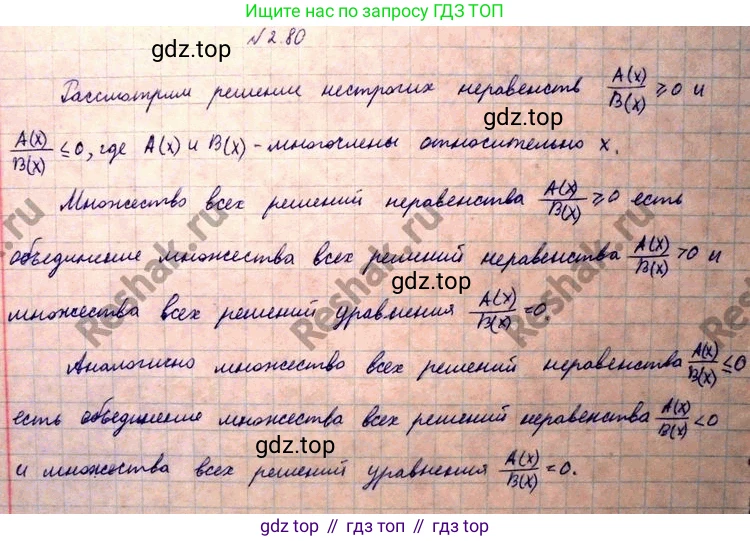 Ищите нас по запросу ГДЗ ТОП
gdz.top
№2.80
Рассмотрим решении нестрогих неравенств A(x)/B(x) ≥ 0 и
gdz.top
A(x)/B(x) ≤ 0, где A(x) и B(x) - многочлены относительно x.
Множество всех решений неравенства A(x)/B(x) ≥ 0 есть
объединение множества всех решений неравенства A(x)/B(x) > 0 и
gdz.top
множества всех решений уравнения A(x)/B(x) = 0.
Аналогично множество всех решений неравенства A(x)/B(x) ≤ 0
есть объединение множества всех решений неравенства A(x)/B(x) < 0
и множества всех решений уравнения A(x)/B(x) = 0.
Reshak.ru
Reshak.ru
Reshak.ru
gdz.top // гдз топ // gdz.top